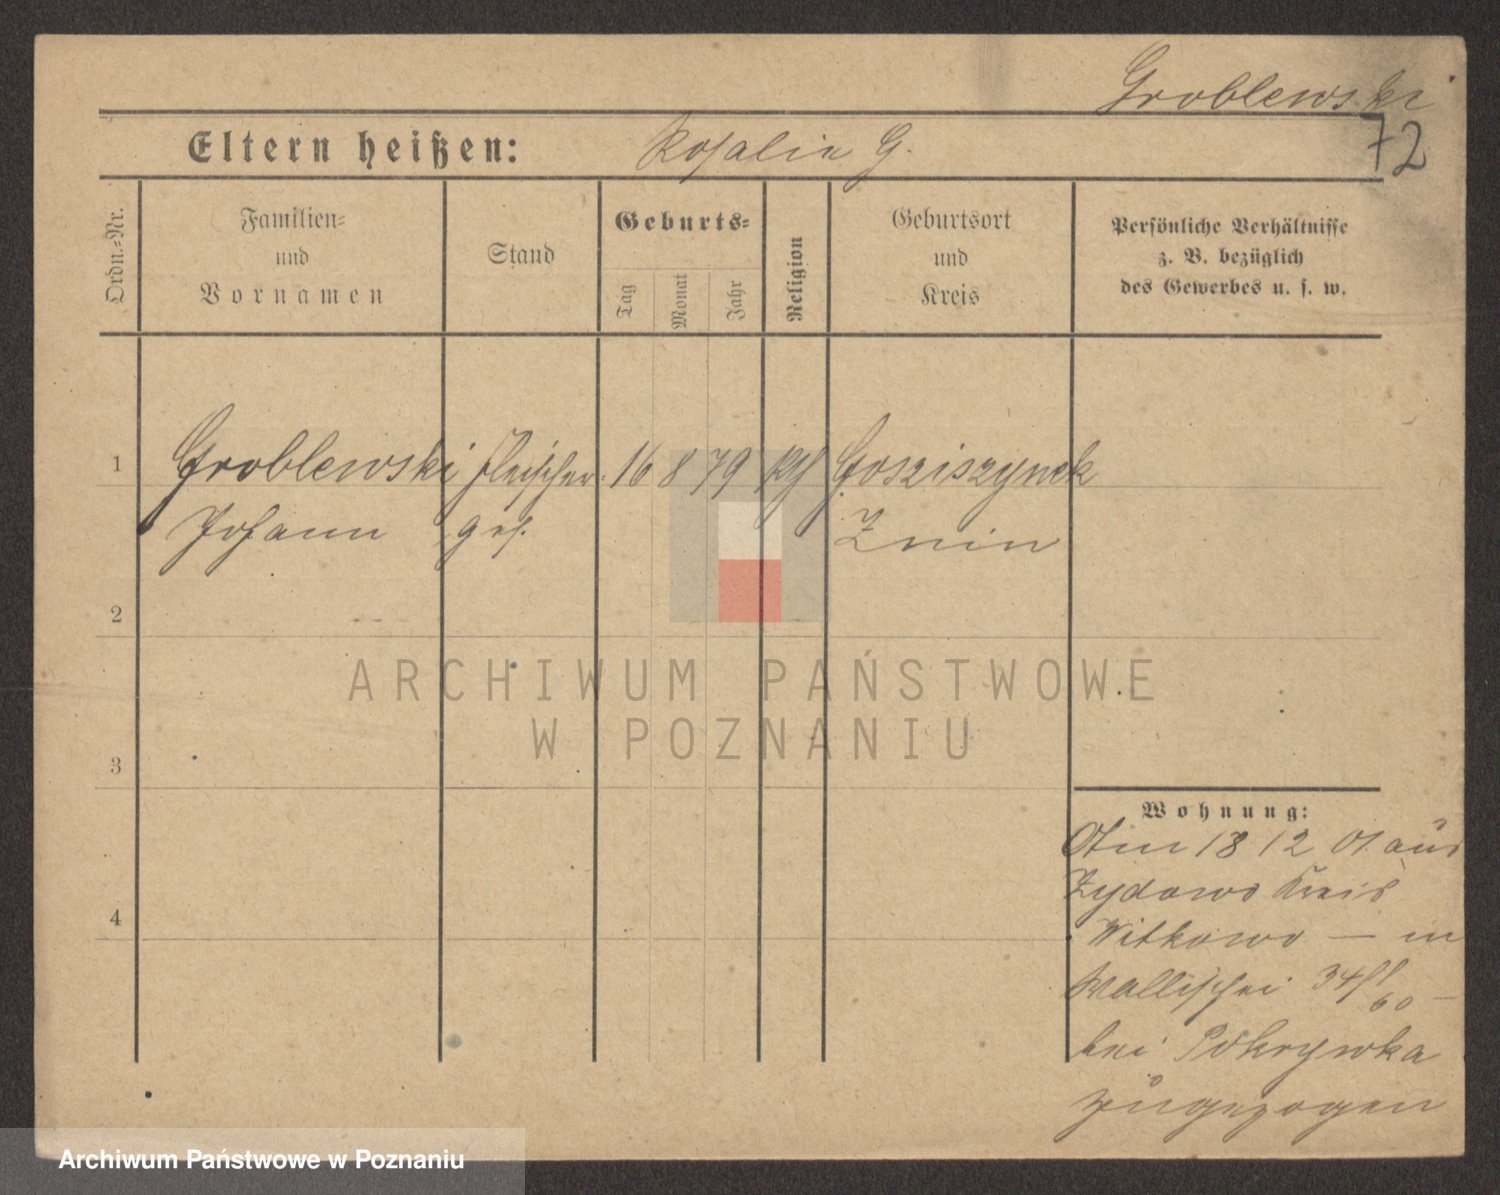 Groblewski
72
Eltern heißen: Rosalie G.
Ordn.=Nr.
Familien=
und
Vornamen
Stand
Geburts=
Tag
Monat
Jahr
Religion
Geburtsort
und
Kreis
Persönliche Verhältnisse
z. B. bezüglich
des Gewerbes u. s. w.
1 Groblewski Fleischer 16 8 79 kth Gosziszynek
Johann ges. Znin
2
ARCHIWUM PAŃSTWOWE
W POZNANIU
3
Wohnung:
Am 18 12 01 aus
Zydowo Kreis
4
Witkowo — in
Wallischei 34/
60 —
bei Pokrywka
zugezogen
Archiwum Państwowe w Poznaniu